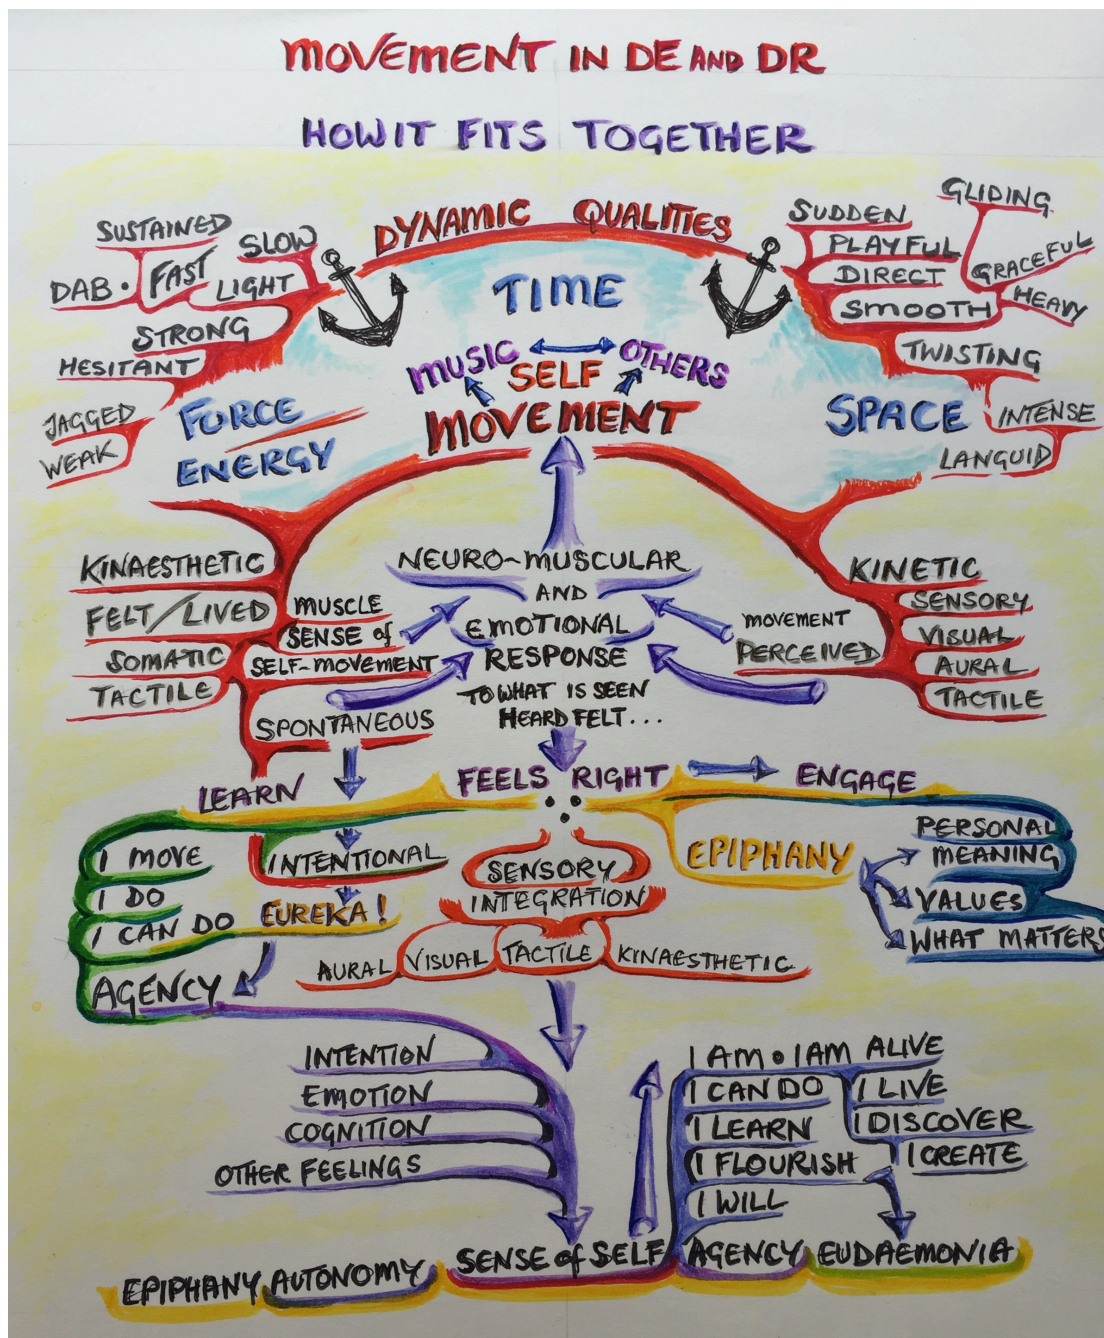 MOVEMENT IN DE AND DR
HOW IT FITS TOGETHER
DYNAMIC QUALITIES
SUSTAINED
SLOW
DAB • FAST
LIGHT
STRONG
HESITANT
JAGGED
WEAK
SUDDEN
GLIDING
PLAYFUL
DIRECT
GRACEFUL
SMOOTH
HEAVY
TWISTING
INTENSE
LANGUID
TIME
MUSIC
OTHERS
SELF
MOVEMENT
FORCE
ENERGY
SPACE
KINAESTHETIC
FELT/LIVED
SOMATIC
TACTILE
MUSCLE
SENSE of
SELF-MOVEMENT
SPONTANEOUS
NEURO-MUSCULAR
AND
EMOTIONAL
RESPONSE
TO WHAT IS SEEN
HEARD FELT...
MOVEMENT
PERCEIVED
KINETIC
SENSORY
VISUAL
AURAL
TACTILE
LEARN
FEELS RIGHT
ENGAGE
I MOVE
I DO
I CAN DO
AGENCY
INTENTIONAL
EUREKA!
SENSORY
INTEGRATION
AURAL
VISUAL
TACTILE
KINAESTHETIC
EPIPHANY
PERSONAL
MEANING
VALUES
WHAT MATTERS
INTENTION
EMOTION
COGNITION
OTHER FEELINGS
I AM • I AM ALIVE
I CAN DO
I LIVE
I LEARN
I DISCOVER
I FLOURISH
I CREATE
I WILL
EPIPHANY AUTONOMY SENSE of SELF AGENCY EUDAEMONIA